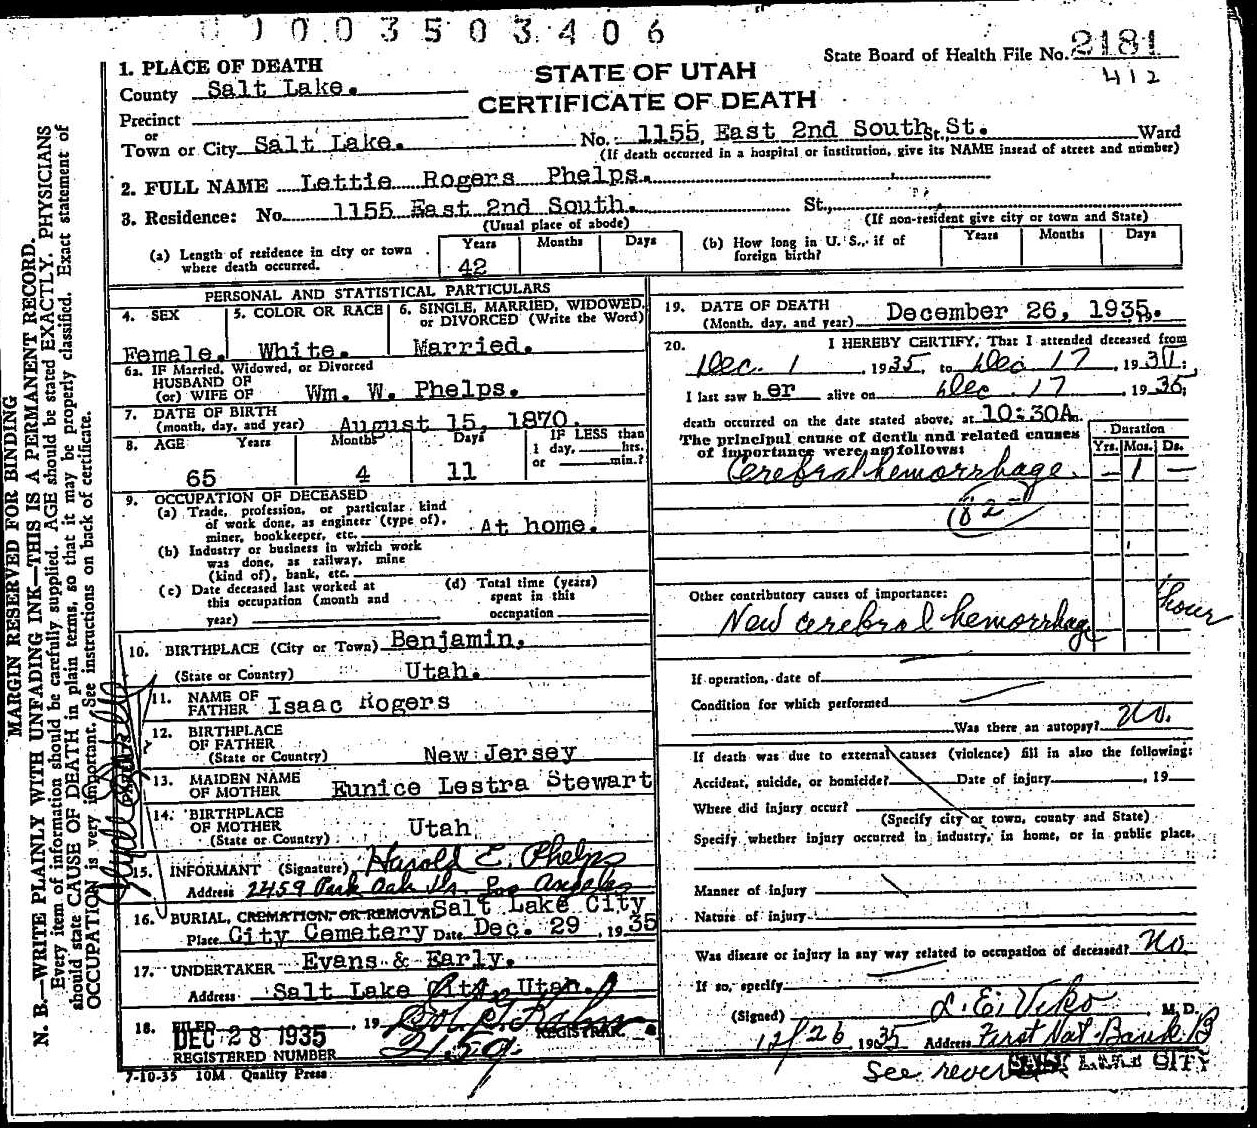 0 0 0 3 5 0 3 4 0 6
State Board of Health File No. 2181
412
STATE OF UTAH
CERTIFICATE OF DEATH
1. PLACE OF DEATH
County Salt Lake.
Precinct
or
Town or City Salt Lake. No. 1155, East 2nd South St., St. Ward
(If death occurred in a hospital or institution, give its NAME insead of street and number)
2. FULL NAME Lettie Rogers Phelps.
3. Residence: No. 1155 East 2nd South. St.,
(Usual place of abode) (If non-resident give city or town and State)
(a) Length of residence in city or town where death occurred. Years 42 Months Days
(b) How long in U. S., if of foreign birth? Years Months Days
PERSONAL AND STATISTICAL PARTICULARS
4. SEX Female.
5. COLOR OR RACE White.
6. SINGLE, MARRIED, WIDOWED, or DIVORCED (Write the Word) Married.
6a. IF Married, Widowed, or Divorced
HUSBAND OF
(or) WIFE OF Wm. W. Phelps.
7. DATE OF BIRTH
(month, day, and year) August 15, 1870.
8. AGE Years 65 Months 4 Days 11 IF LESS than 1 day, hrs. or min.?
9. OCCUPATION OF DECEASED
(a) Trade, profession, or particular kind
of work done, as engineer (type of),
miner, bookkeeper, etc. At home.
(b) Industry or business in which work
was done, as railway, mine
(kind of), bank, etc.
(c) Date deceased last worked at this occupation (month and year)
(d) Total time (years) spent in this occupation
10. BIRTHPLACE (City or Town) Benjamin,
(State or Country) Utah.
11. NAME OF FATHER Isaac Rogers
12. BIRTHPLACE OF FATHER
(State or Country) New Jersey
13. MAIDEN NAME OF MOTHER Eunice Lestra Stewart
14. BIRTHPLACE OF MOTHER
(State or Country) Utah
15. INFORMANT (Signature) Harold E. Phelps
Address 2459 Park Oak Dr. Los Angeles
16. BURIAL, CREMATION, OR REMOVAL Salt Lake City
Place City Cemetery Date Dec. 29, 1935
17. UNDERTAKER Evans & Early.
Address Salt Lake City, Utah.
18. FILED DEC 28 1935, 19 REGISTRAR.
REGISTERED NUMBER 2159
7-10-35 10M Quality Press
19. DATE OF DEATH
(Month, day, and year) December 26, 1935.
20. I HEREBY CERTIFY, That I attended deceased from
Dec. 1, 1935, to Dec 17, 193
I last saw her alive on Dec. 17, 1936,
death occurred on the date stated above, at 10:30A m.
The principal cause of death and related causes
of importance were as follows:
Duration
Yrs. Mos. Ds.
Cerebral hemorrhage. — 1 —
Other contributory causes of importance:
New cerebral hemorrhage 1 hour
If operation, date of
Condition for which performed
Was there an autopsy? No.
If death was due to external causes (violence) fill in also the following:
Accident, suicide, or homicide? Date of injury , 19
Where did injury occur?
(Specify city or town, county and State)
Specify whether injury occurred in industry, in home, or in public place.
Manner of injury
Nature of injury
Was disease or injury in any way related to occupation of deceased? No
If so, specify
(Signed) L. E. Viko, M. D.
12/26 1935 Address First Nat Bank B
See reverse SALT LAKE CITY
MARGIN RESERVED FOR BINDING
N. B.—WRITE PLAINLY WITH UNFADING INK—THIS IS A PERMANENT RECORD.
Every item of information should be carefully supplied. AGE should be stated EXACTLY. PHYSICIANS
should state CAUSE OF DEATH in plain terms, so that it may be properly classified. Exact statement of
OCCUPATION is very important. See instructions on back of certificate.